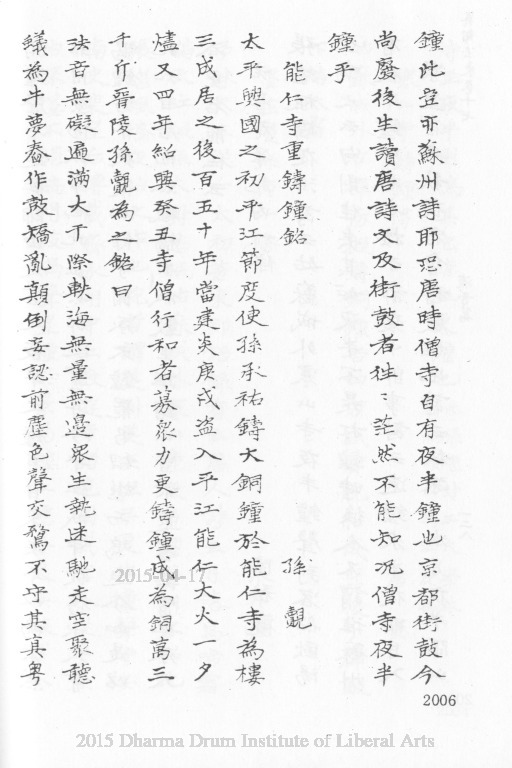 鐘此豈亦蘇州詩耶恐唐時僧寺自有夜半鐘也京都街鼓今
尚廢後生讀唐詩文及街鼓者往〻茫然不能知况僧寺夜半
鐘乎
能仁寺重鑄鐘銘　孫覿
太平興國之初平江節度使孫承祐鑄大銅鐘於能仁寺為樓
三成居之後百五十年當建炎庚戌盗入平江能仁大火一夕
燼又四年紹興癸丑寺僧行和者募衆力更鑄鐘成為銅萬三
千斤晉陵孫覿為之銘曰
法音無礙遍滿大千際軼海無量無邊衆生執迷馳走空聚聽
蟻為牛夢舂作鼓矯亂顛倒妄認前塵色聲交騖不守其真粤
2015-04-17
2006
2015 Dharma Drum Institute of Liberal Arts